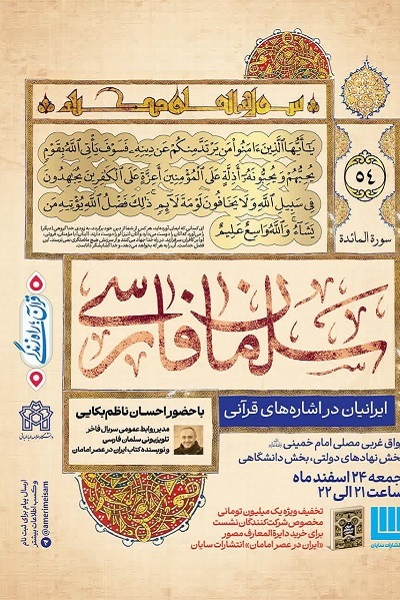 يَٰٓأَيُّهَا ٱلَّذِينَ ءَامَنُوا۟ مَن يَرْتَدَّ مِنكُمْ عَن دِينِهِۦ فَسَوْفَ يَأْتِي ٱللَّهُ بِقَوْمٍ
يُحِبُّهُمْ وَيُحِبُّونَهُۥٓ أَذِلَّةٍ عَلَى ٱلْمُؤْمِنِينَ أَعِزَّةٍ عَلَى ٱلْكَٰفِرِينَ يُجَٰهِدُونَ
فِي سَبِيلِ ٱللَّهِ وَلَا يَخَافُونَ لَوْمَةَ لَآئِمٍ ذَٰلِكَ فَضْلُ ٱللَّهِ يُؤْتِيهِ مَن
يَشَآءُ وَٱللَّهُ وَٰسِعٌ عَلِيمٌ
٥٤
سورة المائدة
سلمان فارسی
قرآن؛ راه زندگی
ایرانیان در اشاره‌های قرآنی
با حضور احسان ناظم‌بکایی
مدیر روابط عمومی سریال فاخر
تلویزیونی سلمان فارسی
و نویسنده کتاب ایران در عصر امامان
رواق غربی مصلی امام خمینی
بخش نهادهای دولتی، بخش دانشگاهی
جمعه ۲۴ اسفند ماه
ساعت ۲۱ الی ۲۲
تخفیف ویژه یک میلیون تومانی
مخصوص شرکت‌کنندگان نشست
برای خرید دایرةالمعارف مصور
«ایران در عصر امامان» انتشارات سایان
انتشارات سایان
ارسال پیام برای ثبت نام
و کسب اطلاعات بیشتر
@amerimeisam